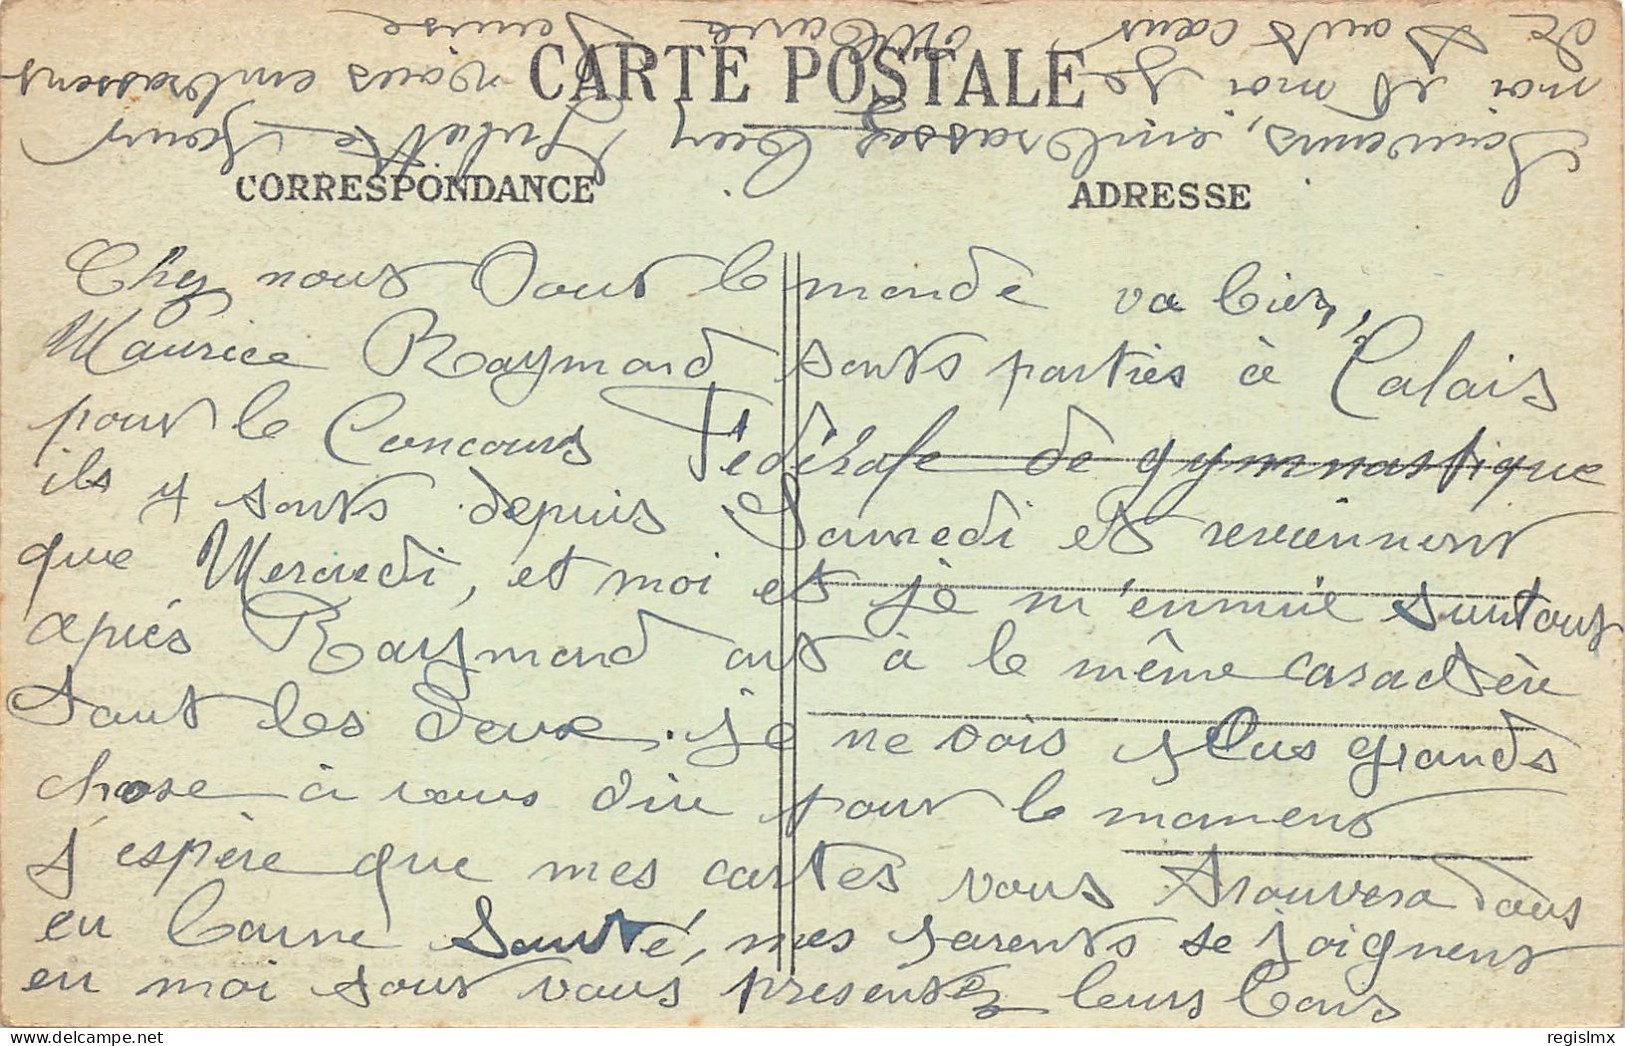 CARTE POSTALE
CORRESPONDANCE
ADRESSE
Chez nous tout le monde va bien,
Maurice Raymond sonts parties à Calais
pour le Concours Fédérale de gymnastique
ils y sonts depuis Samedi et reviennent
que Mercredi, et moi et je m'ennuie surtout
après Raymond ont à le même caractère
tout les deux. je ne vois plus grands
chose à vous dire pour le moment
j'espère que mes cartes vous trouvera tous
en bonne Santé, mes parents se joignent
en moi pour vous presentez leurs bons
Souvenirs, embrassez bien Juliette pour
moi et moi je vous embrassens
de touts cœur
regislmx